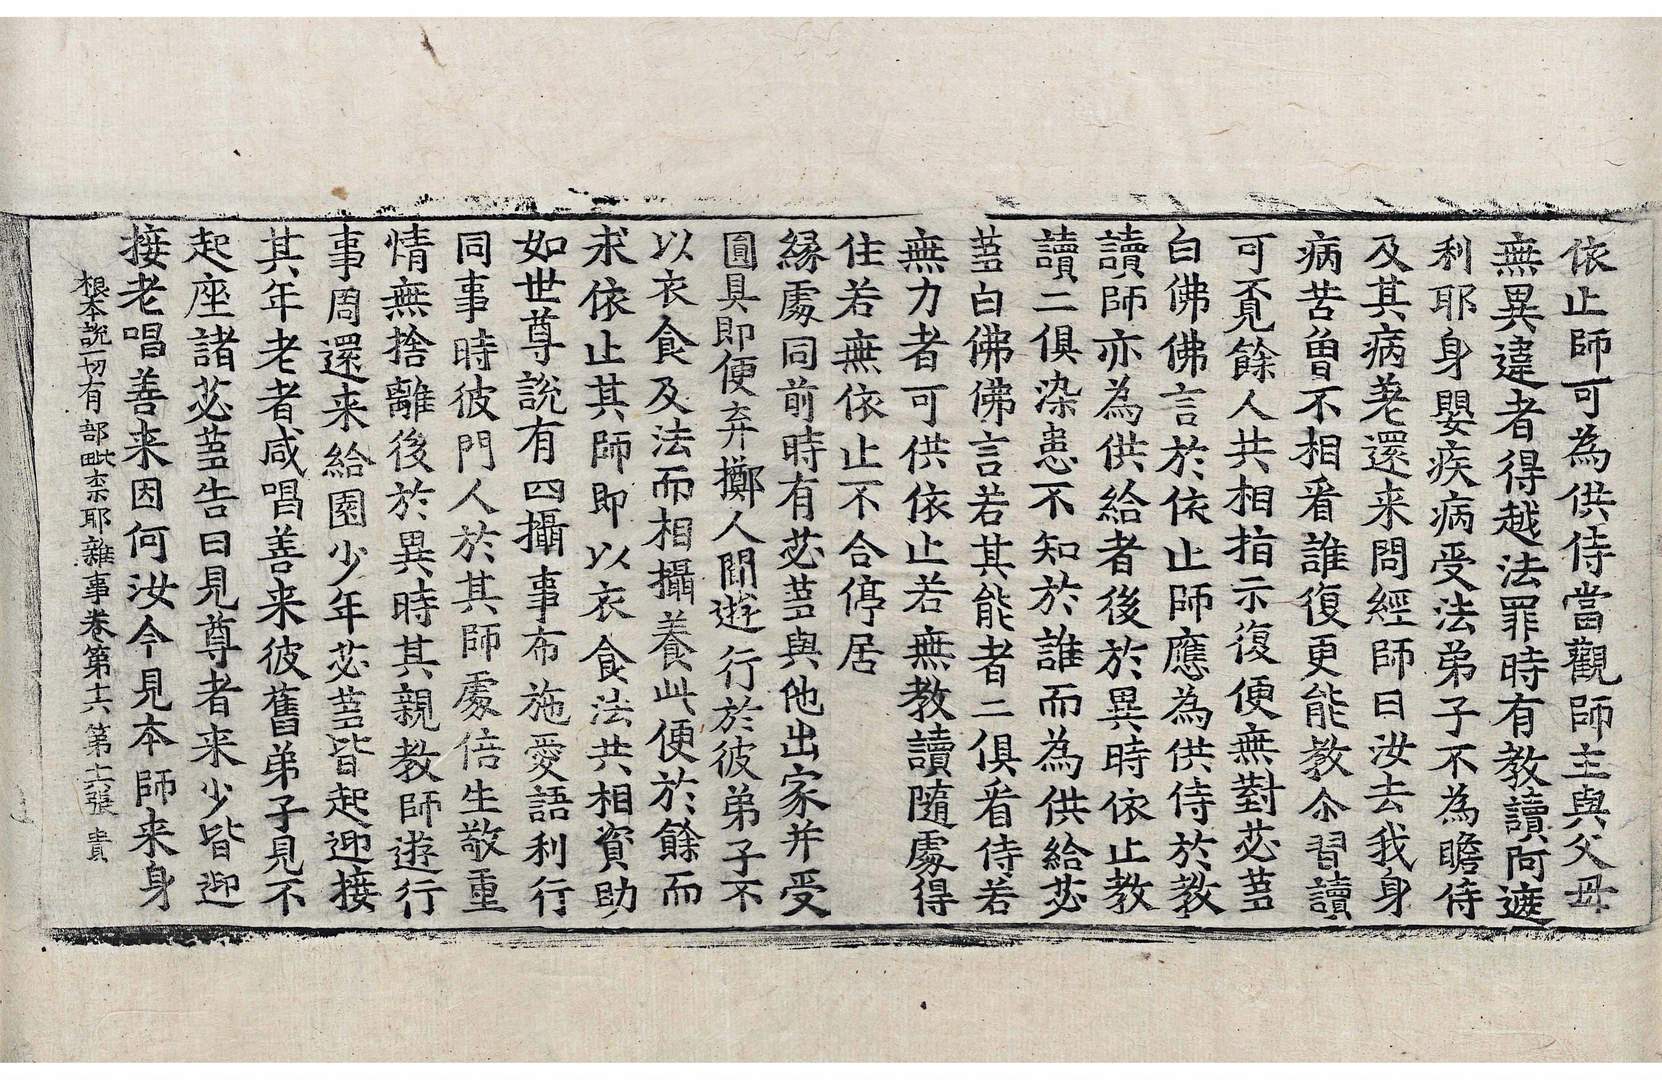 依止師可為供侍當觀師主與父母
無異違者得越法罪時有教讀阿遮
利耶身嬰疾病受法弟子不為瞻侍
及其病差還来問經師曰汝去我身
病苦曾不相看誰復更能教尒習讀
可覔餘人共相指示復便無對苾蒭
白佛佛言於依止師應為供侍於教
讀師亦為供給者後於異時依止教
讀二俱染患不知於誰而為供給苾
蒭白佛佛言若其能者二俱看侍若
無力者可供依止若無教讀隨處得
住若無依止不合停居
緣處同前時有苾蒭與他出家并受
圓具即便弃擲人間遊行於彼弟子不
以衣食及法而相攝養此便於餘而
求依止其師即以衣食法共相資助
如世尊說有四攝事布施愛語利行
同事時彼門人於其師處倍生敬重
情無捨離後於異時其親教師遊行
事周還来給園少年苾蒭皆起迎接
其年老者咸唱善来彼舊弟子見不
起座諸苾蒭告曰見尊者来少皆迎
接老唱善来因何汝今見本師来身
根本說一切有部毗柰耶雜事卷第十六 第十六張 貴